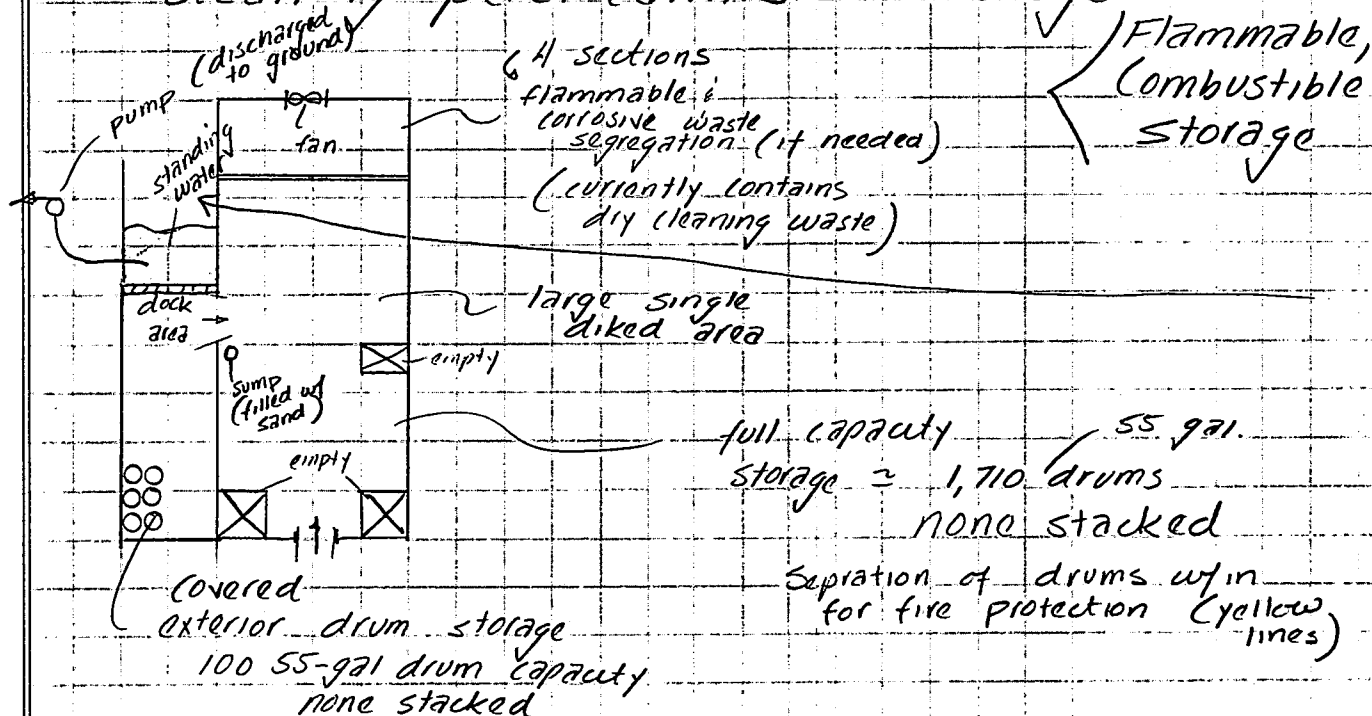 (discharged
to ground)
pump
standing
water
fan
4 sections
flammable &
corrosive waste
segregation (if needed)
(currently contains
dry cleaning waste)
Flammable,
Combustible
storage
dock
area
large single
diked area
empty
sump
(filled w/
sand)
empty
full capacity
storage ≃ 1,710 drums
55 gal.
none stacked
Sepration of drums w/in
for fire protection (yellow
lines)
covered
exterior drum storage
100 55-gal drum capacity
none stacked